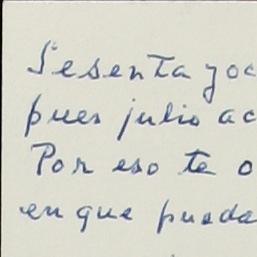 Sesenta yoc
pues julio ac
Por eso te o
en que pueda